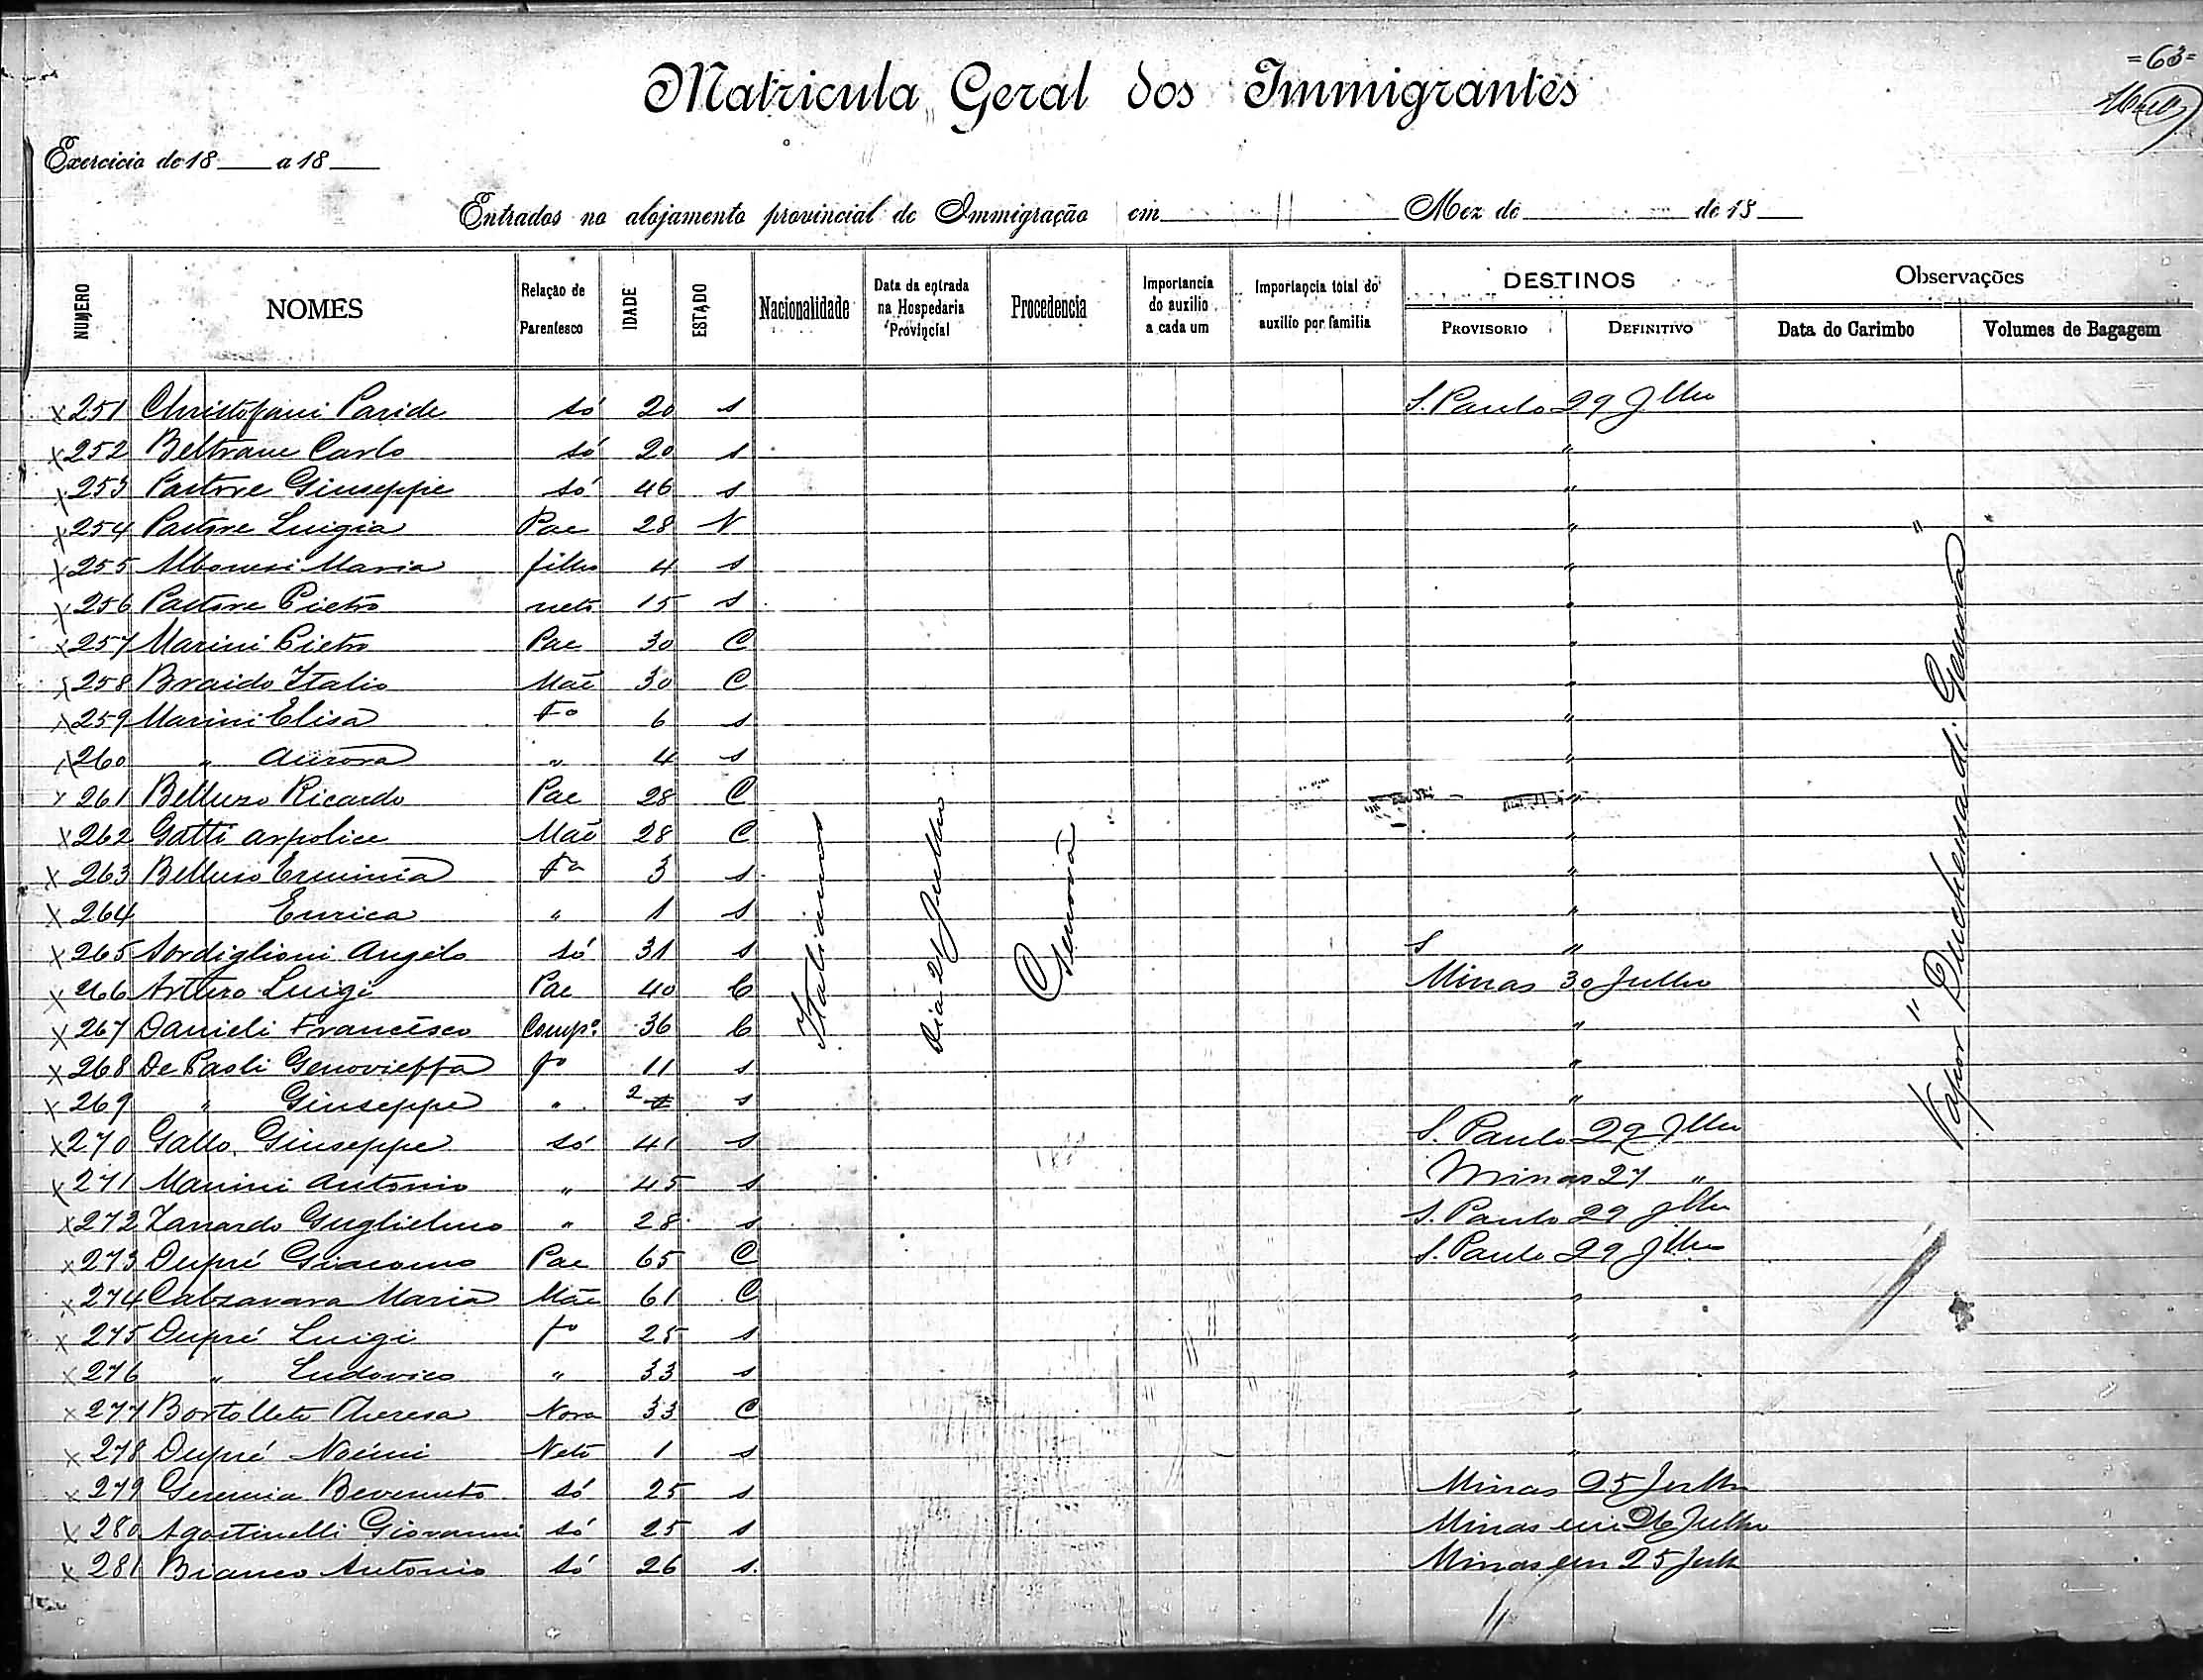 =63=
Matricula Geral dos Immigrantes
Exercicio de 18 a 18
Entrados no alojamento provincial de Immigração em " Mez de de 18
NUMERO NOMES Relação de Parentesco IDADE ESTADO Nacionalidade Data da entrada na Hospedaria Provincial Procedencia Importancia do auxilio a cada um Importancia total do auxilio por familia DESTINOS PROVISORIO DEFINITIVO Observações Data do Carimbo Volumes de Bagagem
x 251 Christofani Paride só 20 s S. Paulo 29 Jlho
x 252 Beltrame Carlo só 20 s "
x 253 Pastore Giuseppe só 46 s "
x 254 Pastore Luigia Pae 28 V "
x 255 Maria filho 4 s "
x 256 Pastore Pietro neto 15 s "
x 257 Marini Pietro Pae 30 C "
x 258 Braido Italio Mãe 30 C "
x 259 Marini Elisa fo 6 s "
x 260 " Aurora " 4 s "
x 261 Belluzo Ricardo Pae 28 C "
x 262 Gatti Mãe 28 C "
x 263 Belluso Erminia fa 3 s "
x 264 Enrica " 1 s "
x 265 Sordiglioni Angelo só 31 s S "
x 266 Arturo Luigi Pae 40 C Minas 30 Julho
x 267 Danieli Francesco Compo. 36 C "
x 268 De Paoli Genovieffa fo 11 s "
x 269 " Giuseppe " 2 s "
x 270 Gallo Giuseppe só 41 s S. Paulo 29 Jlho
x 271 Manini Antonio " 45 s Minas 27 "
x 272 Zanardo Guglielmo " 28 s S. Paulo 29 Jlho
x 273 Dupré Giacomo Pae 65 C S. Paulo 29 Jlho
x 274 Calzavara Maria Mãe 61 C "
x 275 Dupré Luigi fo 25 s "
x 276 " Ludovico " 33 s "
x 277 Bortolleto Theresa Nora 33 C "
x 278 Dupré Noémi Neto 1 s "
x 279 Geremia Bevenuto só 25 s Minas 25 Julho
x 280 Agostinelli Giovanni só 25 s Minas em 26 Julho
x 281 Bianco Antonio só 26 s. Minas em 25 Julh
Italianos
Dia 21 Julho
Genova
Vapor "Duchessa di Genova"